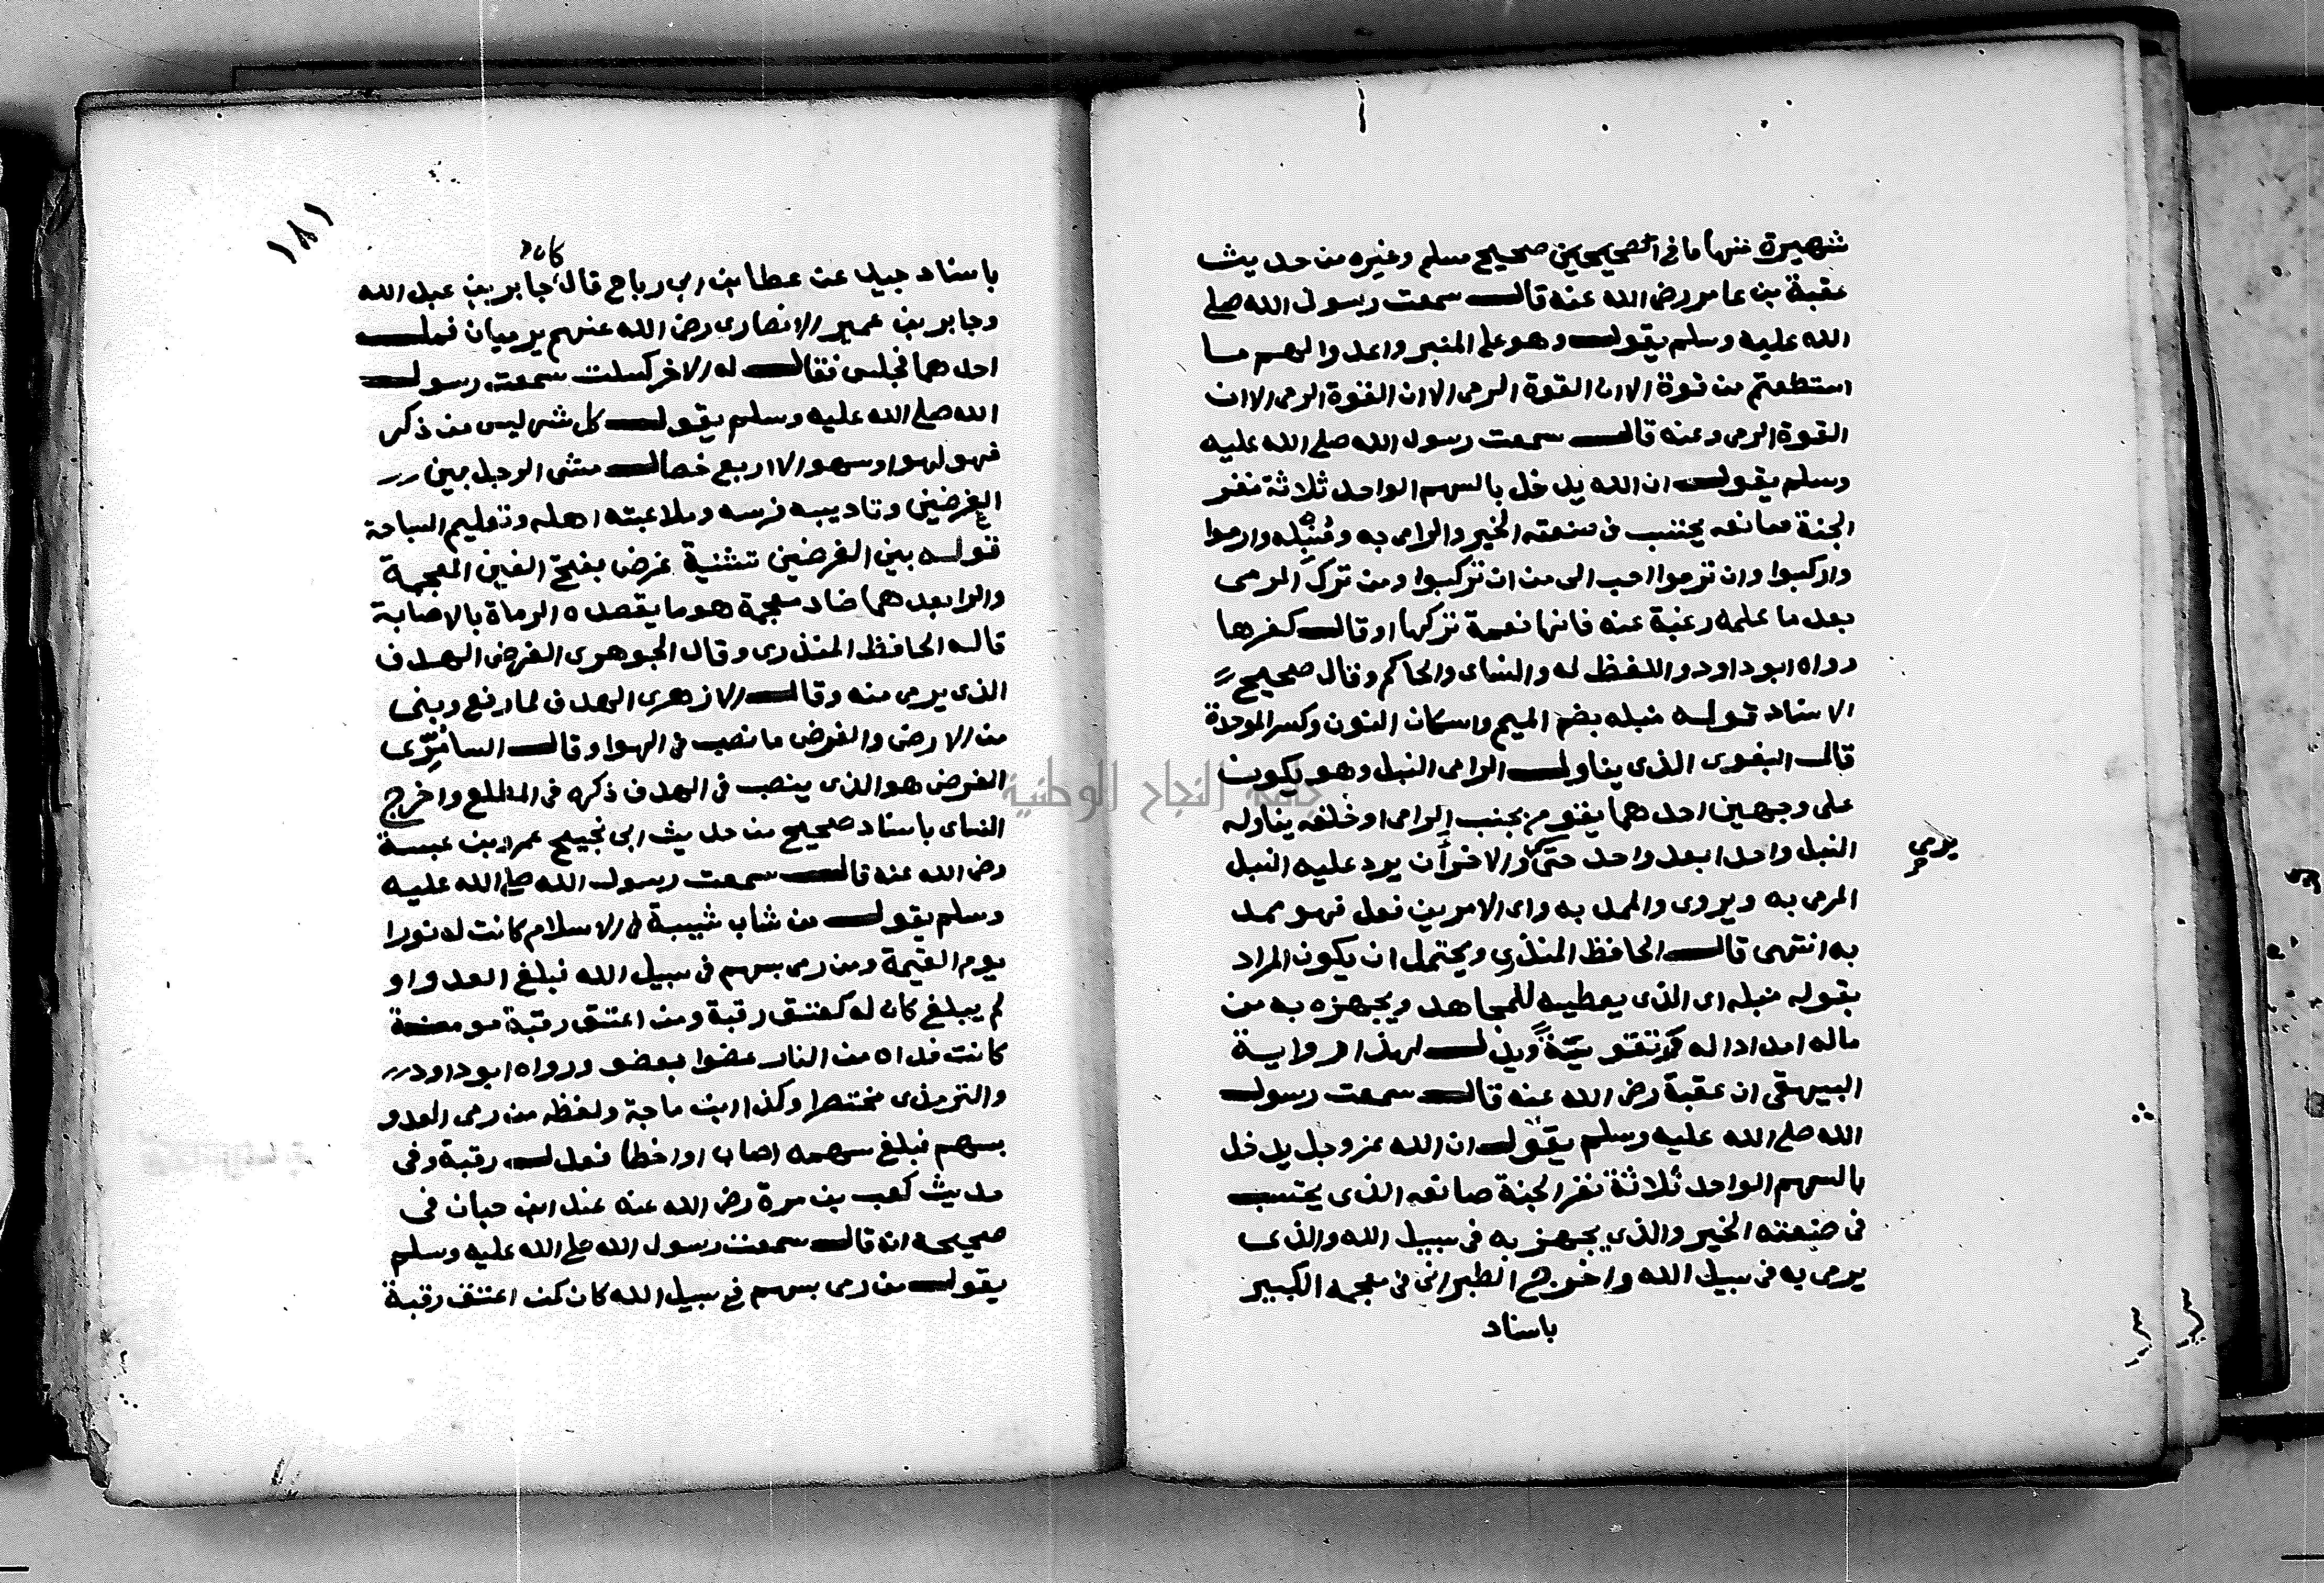 شهيرة منها ما في الصحيحين صحيح مسلم وغيره من حديث
عقبة بن عامر رضى الله عنه قال سمعت رسول الله صلى
الله عليه وسلم يقول وهو على المنبر واعدوا لهم ما
استطعتم من قوة الا ان القوة الرمى الا ان القوة الرمى الا ان
القوة الرمى وعنه قال سمعت رسول الله صلى الله عليه
وسلم يقول ان الله يدخل بالسهم الواحد ثلاثة نفر
الجنة صانعه يحتسب فى صنعته الخير والرامى به ومُنْبِله وارموا
واركبوا وان ترموا احب الى من ان تركبوا ومن ترك الرمى
بعد ما علمه رغبة عنه فانها نعمة تركها او قال كفرها
رواه ابو داود واللفظ له والنساى والحاكم وقال صحيح
الاسناد قوله منبله بضم الميم واسكان النون وكسر الموحدة
قال البغوى الذى يناول الرامى النبل وهو يكون
على وجهين احدهما يقوم بجنب الرامى او خلفه يناوله
النبل واحدا بعد واحد حتى والاخر أن يرد عليه النبل
يرمي
المرمى به ويروى والممد به واى الامرين فعل فهو ممد
به انتهى قال الحافظ المنذرى ويحتمل ان يكون المراد
بقوله منبله اى الذى يعطيه للمجاهد ويجهزه به من
ماله امدادا له وتقوية ويدل لهذا رواية
البيهقى ان عقبة رضى الله عنه قال سمعت رسول
الله صلى الله عليه وسلم يقول ان الله عز وجل يدخل
بالسهم الواحد ثلاثة نفر الجنة صانعه الذى يحتسب
فى صنعته الخير والذى يجهز به فى سبيل الله والذى
يرمى به فى سبيل الله واخرج الطبرانى فى معجمه الكبير
باسناد
١٨١
باسناد جيد عن عطا بن ابى رباح قال جابر بن عبد الله
وجابر بن عمير الانصارى رضى الله عنهم يرميان فمل
احدهما فجلس فقال له الاخر كسلت سمعت رسول
الله صلى الله عليه وسلم يقول كل شى ليس من ذكر
فهو لهو او سهو الا اربع خصال مشى الرجل بين
الغرضين وتاديبه فرسه وملاعبته اهله وتعليم السباحة
قوله بين الغرضين تثنية غرض بفتح الغين المعجمة
والرا بعدهما ضاد معجمة هو ما يقصده الرماة بالاصابة
قاله الحافظ المنذرى وقال الجوهرى الغرض الهدف
الذى يرمى منه وقال الازهرى الهدف لما رفع وبنى
من الارض والغرض ما نصب فى الهوا وقال السامرّى
الغرض هو الذى ينصب فى الهدف ذكره فى المطلع واخرج
النساى باسناد صحيح من حديث ابى نجيح عمرو بن عبسة
رضى الله عنه قال سمعت رسول الله صلى الله عليه
وسلم يقول من شاب شيبة فى الاسلام كانت له نورا
يوم القيمة ومن رمى بسهم فى سبيل الله فبلغ العدو او
لم يبلغ كان له كعتق رقبة ومن اعتق رقبة مومنة
كانت فداه من النار عضوا بعضو ورواه ابو داود
والترمذى مختصرا وكذا ابن ماجة ولفظه من رمى العدو
بسهم فبلغ سهمه اصاب او اخطا فعدل رقبة وفى
حديث كعب بن مرة رضى الله عنه عند ابن حبان فى
صحيحه انه قال سمعت رسول الله صلى الله عليه وسلم
يقول من رمى بسهم فى سبيل الله كان كمن اعتق رقبة
جامعة النجاح الوطنية